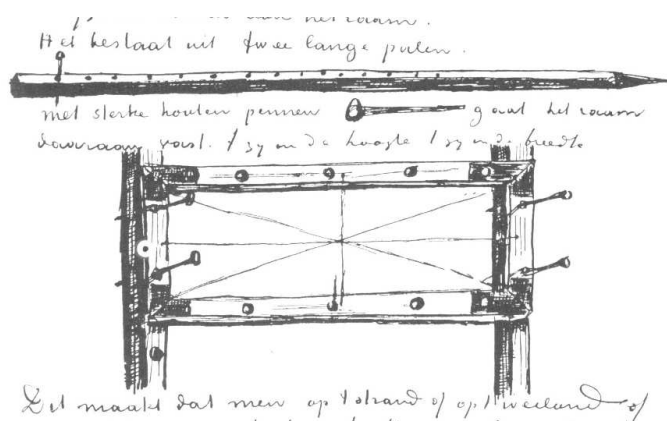 aan het raam.
Het bestaat uit twee lange palen.
met sterke houten pennen gaat het raam
daaraan vast. 't zij in de hoogte 't zij in de breedte
Dit maakt dat men op 't strand of op 't weiland of